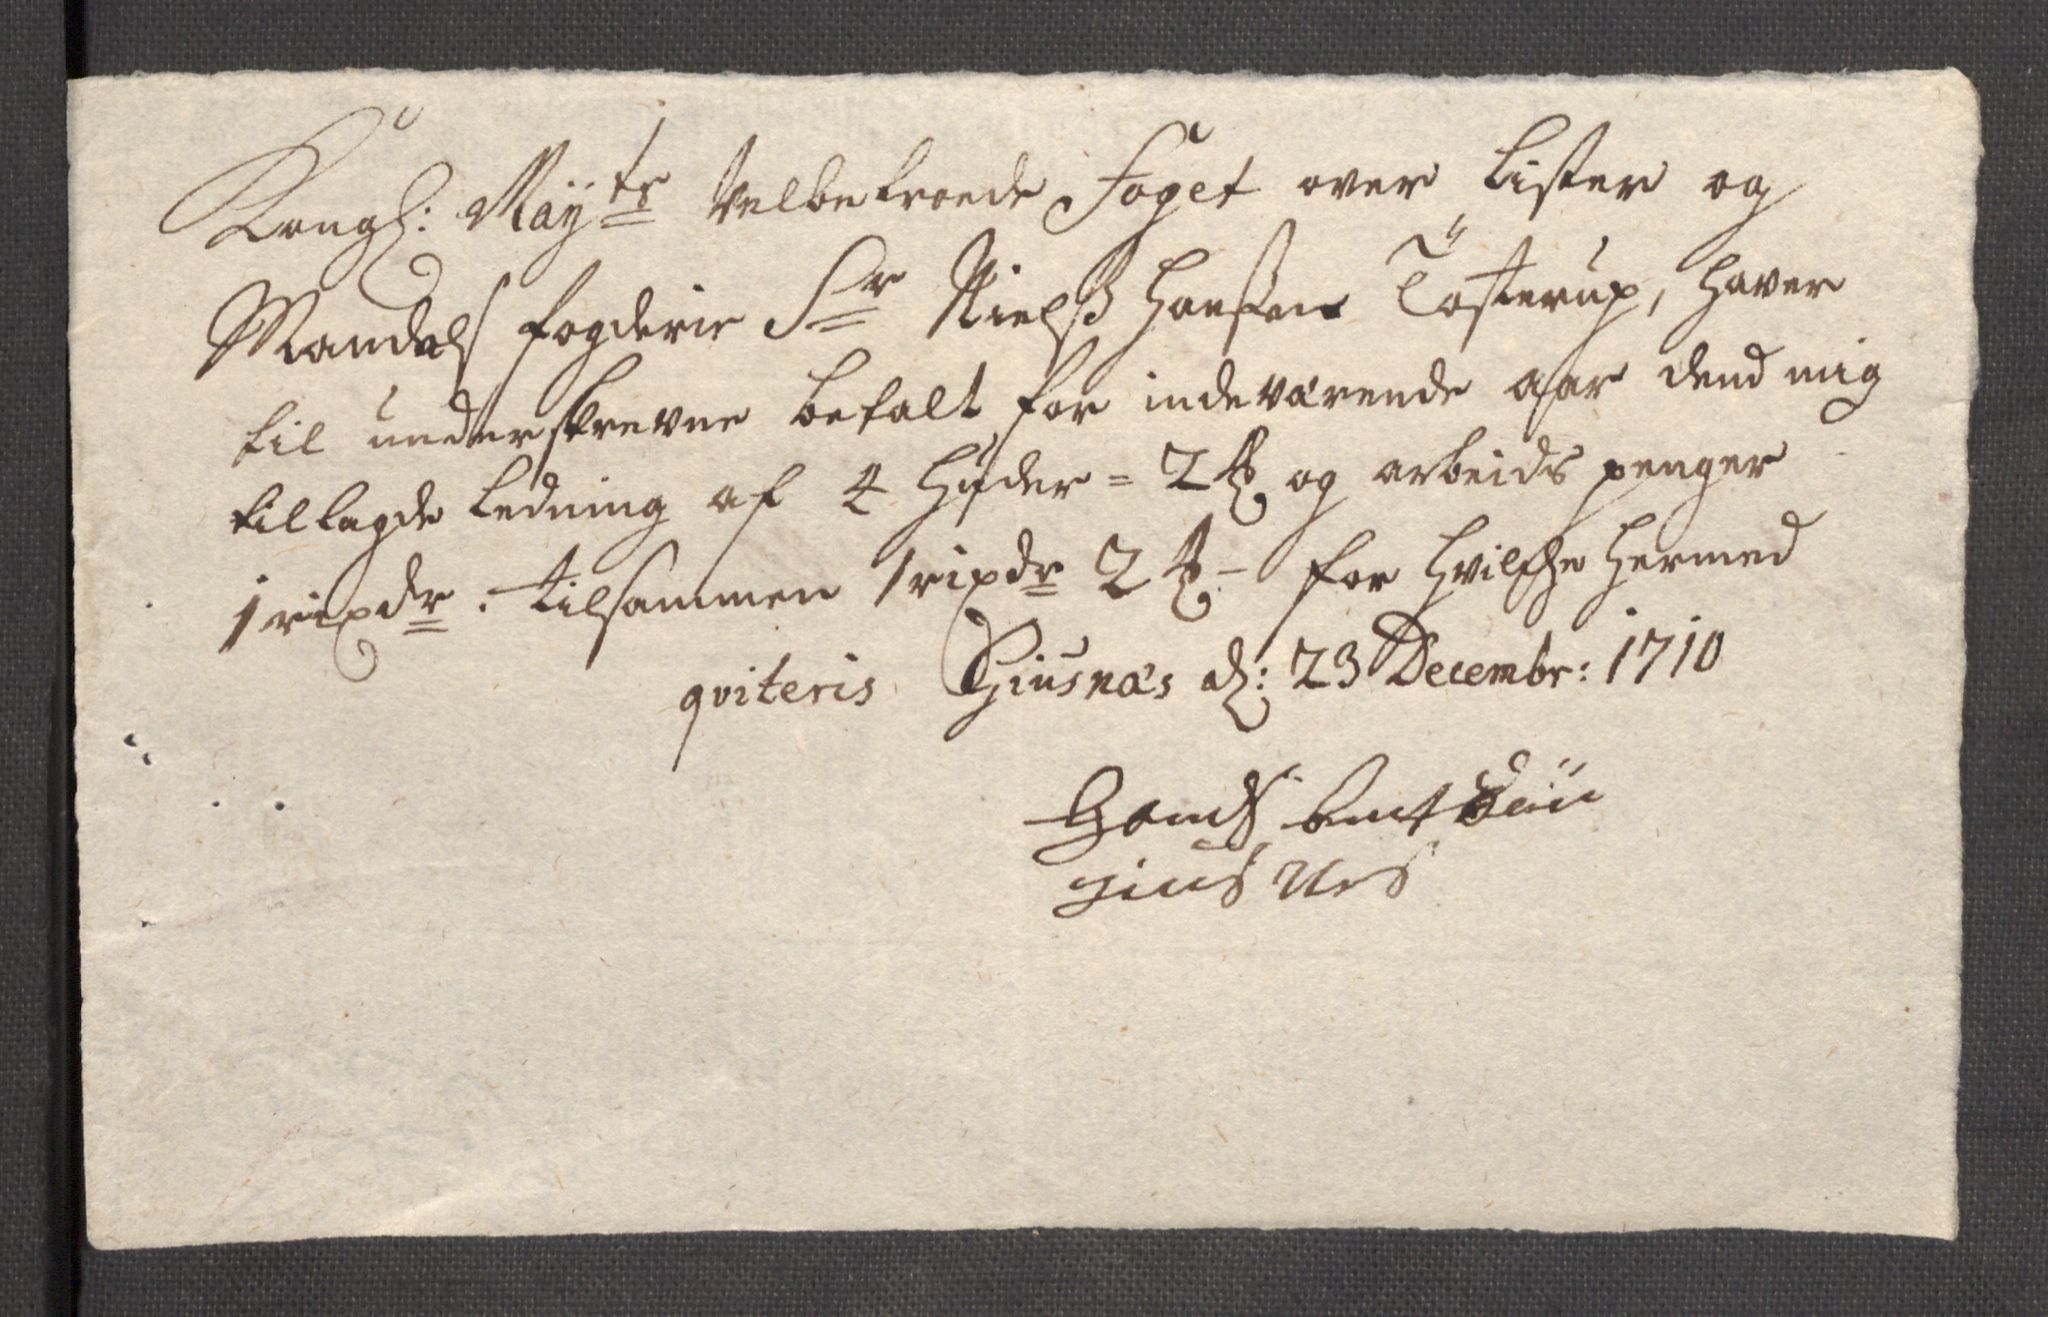 Kongl: Maÿts Velbetroede Foget over Lister og
Mandals fogderie Sr Nielß Hanßen Tosterup, haver
til underskrevne betalt for indeværende aar dend mig
tillagde Ledning af 4 Huder = 2 ß og arbeids penger
1 rixdr. tilsammen 1 rixdr 2 ß - for hvilche hermed
qviteris Giusnæs d: 23 Decembr: 1710
Hands
giusnes